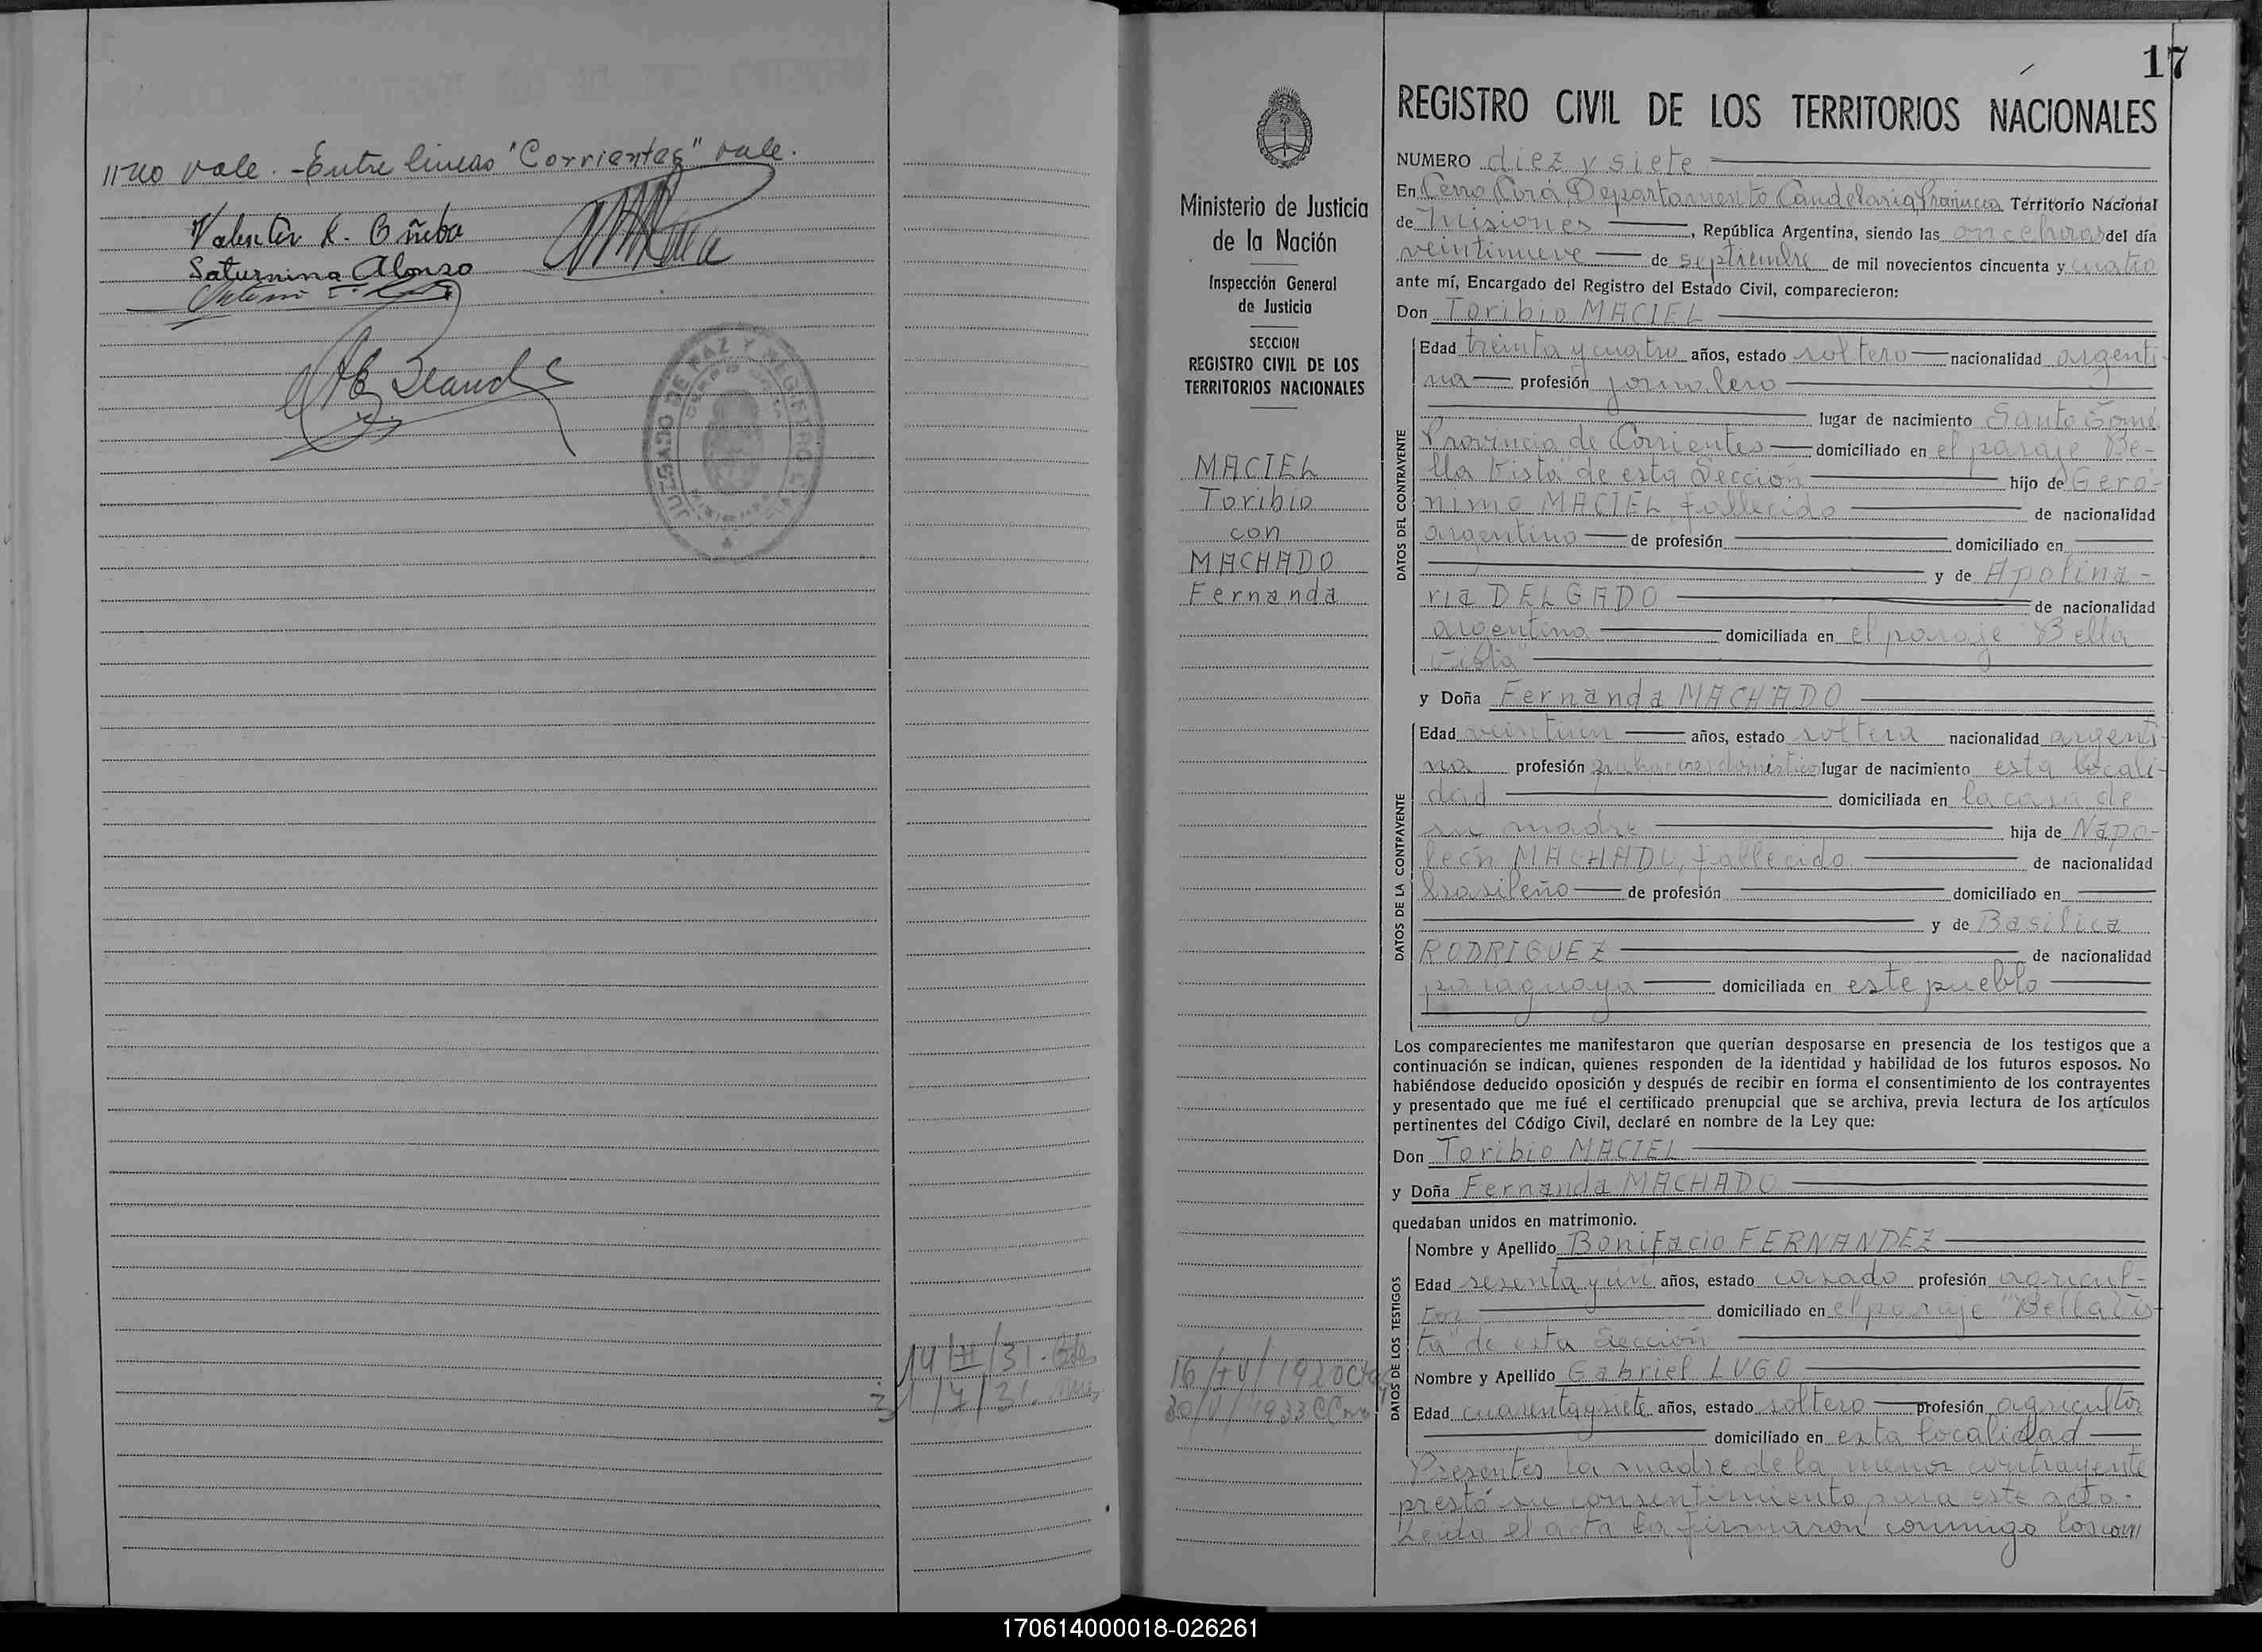 no vale. - Entre lineas "Corrientes" vale.
Saturnina Alonso
JUZGADO DE PAZ Y REGISTRO CIVIL
14/II/31.
31/7/31.
17
REGISTRO CIVIL DE LOS TERRITORIOS NACIONALES
Ministerio de Justicia
de la Nación
Inspección General
de Justicia
SECCION
REGISTRO CIVIL DE LOS
TERRITORIOS NACIONALES
MACIEL
Toribio
con
MACHADO
Fernanda
NUMERO diez y siete
En Cerro Corá, Departamento Candelaria, Provincia Territorio Nacional
de Misiones, República Argentina, siendo las once horas del día
veintinueve de septiembre de mil novecientos cincuenta y cuatro
ante mí, Encargado del Registro del Estado Civil, comparecieron:
Don Toribio MACIEL
DATOS DEL CONTRAYENTE
Edad treinta y cuatro años, estado soltero nacionalidad argenti-
na profesión jornalero
lugar de nacimiento Santo Tomé
Provincia de Corrientes domiciliado en el paraje "Be-
lla Vista" de esta Sección hijo de Geró-
nimo MACIEL, fallecido de nacionalidad
argentino de profesión domiciliado en
y de Apolina-
ria DELGADO de nacionalidad
argentina domiciliada en el paraje "Bella
Vista"
y Doña Fernanda MACHADO
DATOS DE LA CONTRAYENTE
Edad veintiun años, estado soltera nacionalidad argenti-
na profesión quehaceres domésticos lugar de nacimiento esta locali-
dad domiciliada en la casa de
su madre hija de Napo-
león MACHADO, fallecido de nacionalidad
brasileño de profesión domiciliado en
y de Basilica
RODRIGUEZ de nacionalidad
paraguaya domiciliada en este pueblo
Los comparecientes me manifestaron que querían desposarse en presencia de los testigos que a
continuación se indican, quienes responden de la identidad y habilidad de los futuros esposos. No
habiéndose deducido oposición y después de recibir en forma el consentimiento de los contrayentes
y presentado que me fué el certificado prenupcial que se archiva, previa lectura de los artículos
pertinentes del Código Civil, declaré en nombre de la Ley que:
Don Toribio MACIEL
y Doña Fernanda MACHADO
quedaban unidos en matrimonio.
DATOS DE LOS TESTIGOS
Nombre y Apellido Bonifacio FERNANDEZ
Edad sesenta y un años, estado casado profesión agricul-
tor domiciliado en el paraje "Bella Vis-
ta" de esta Sección
Nombre y Apellido Gabriel LUGO
Edad cuarenta y siete años, estado soltero profesión agricultor
domiciliado en esta localidad
Presentes la madre de la menor contrayente
prestó su consentimiento para este acto.-
Leida el acta la firmaron conmigo los con
170614000018-026261